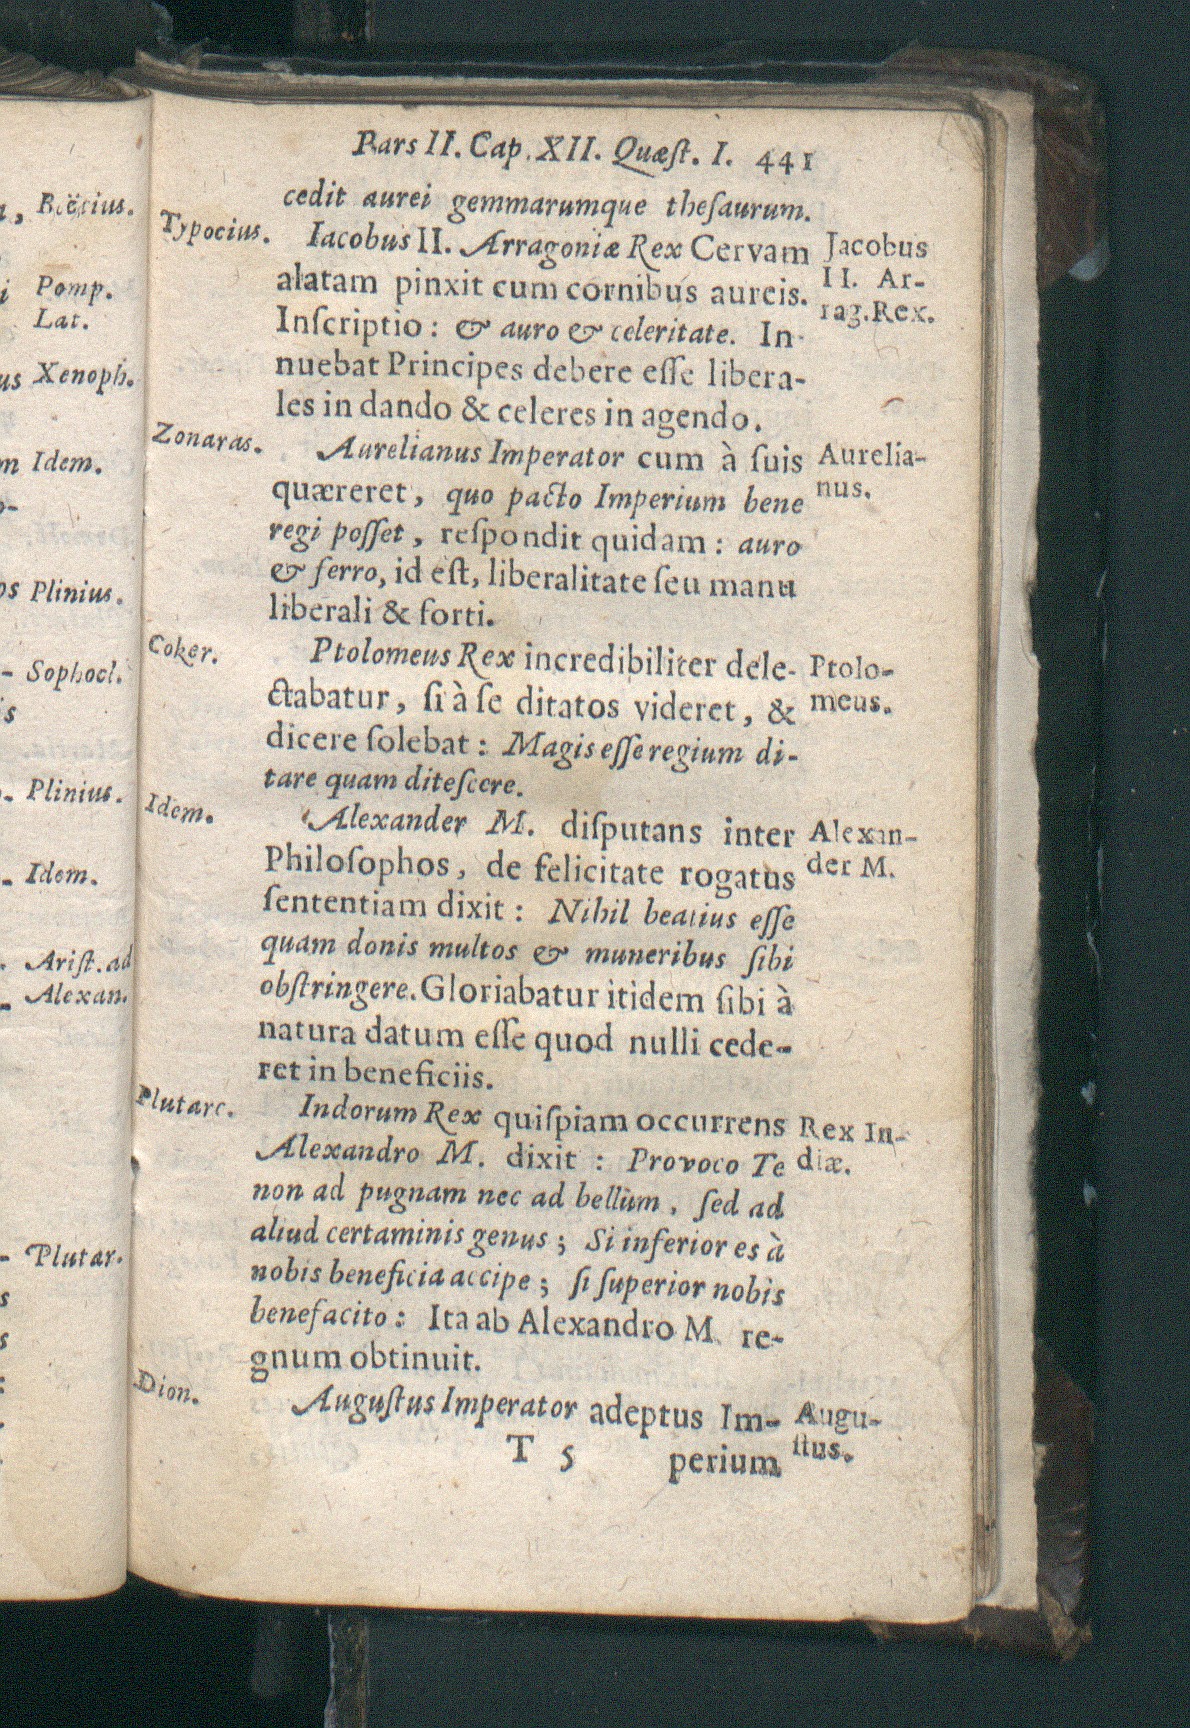 Boëtius.
Pomp.
Lat.
us Xenoph.
m Idem.
os Plinius.
- Sophocl.
is
Plinius.
Idem.
Arist. ad
Alexan.
Plutar.
Pars II. Cap. XII. Quæst. I. 441
cedit aurei gemmarumque theſaurum.
Typocius.
Iacobus II. Arragoniæ Rex Cervam
Jacobus
alatam pinxit cum cornibus aureis.
II. Ar-
Inſcriptio: & auro & celeritate. In-
rag. Rex.
nuebat Principes debere eſſe libera-
les in dando & celeres in agendo.
Zonaras.
Aurelianus Imperator cum à ſuis
Aurelia-
quæreret, quo pacto Imperium bene
nus.
regi poſſet, reſpondit quidam: auro
& ferro, id eſt, liberalitate ſeu manu
liberali & forti.
Coker.
Ptolomeus Rex incredibiliter dele-
Ptolo-
ctabatur, ſi à ſe ditatos videret, &
meus.
dicere ſolebat: Magis eſſe regium di-
tare quam diteſcere.
Idem.
Alexander M. diſputans inter
Alexan-
Philoſophos, de felicitate rogatus
der M.
ſententiam dixit: Nihil beatius eſſe
quam donis multos & muneribus ſibi
obſtringere. Gloriabatur itidem ſibi à
natura datum eſſe quod nulli cede-
ret in beneficiis.
Plutarc.
Indorum Rex quiſpiam occurrens
Rex In-
Alexandro M. dixit: Provoco Te
diæ.
non ad pugnam nec ad bellum, ſed ad
aliud certaminis genus; Si inferior es à
nobis beneficia accipe; ſi ſuperior nobis
benefacito: Ita ab Alexandro M. re-
gnum obtinuit.
Dion.
Auguſtus Imperator adeptus Im-
Augu-
ſtus.
T 5 perium